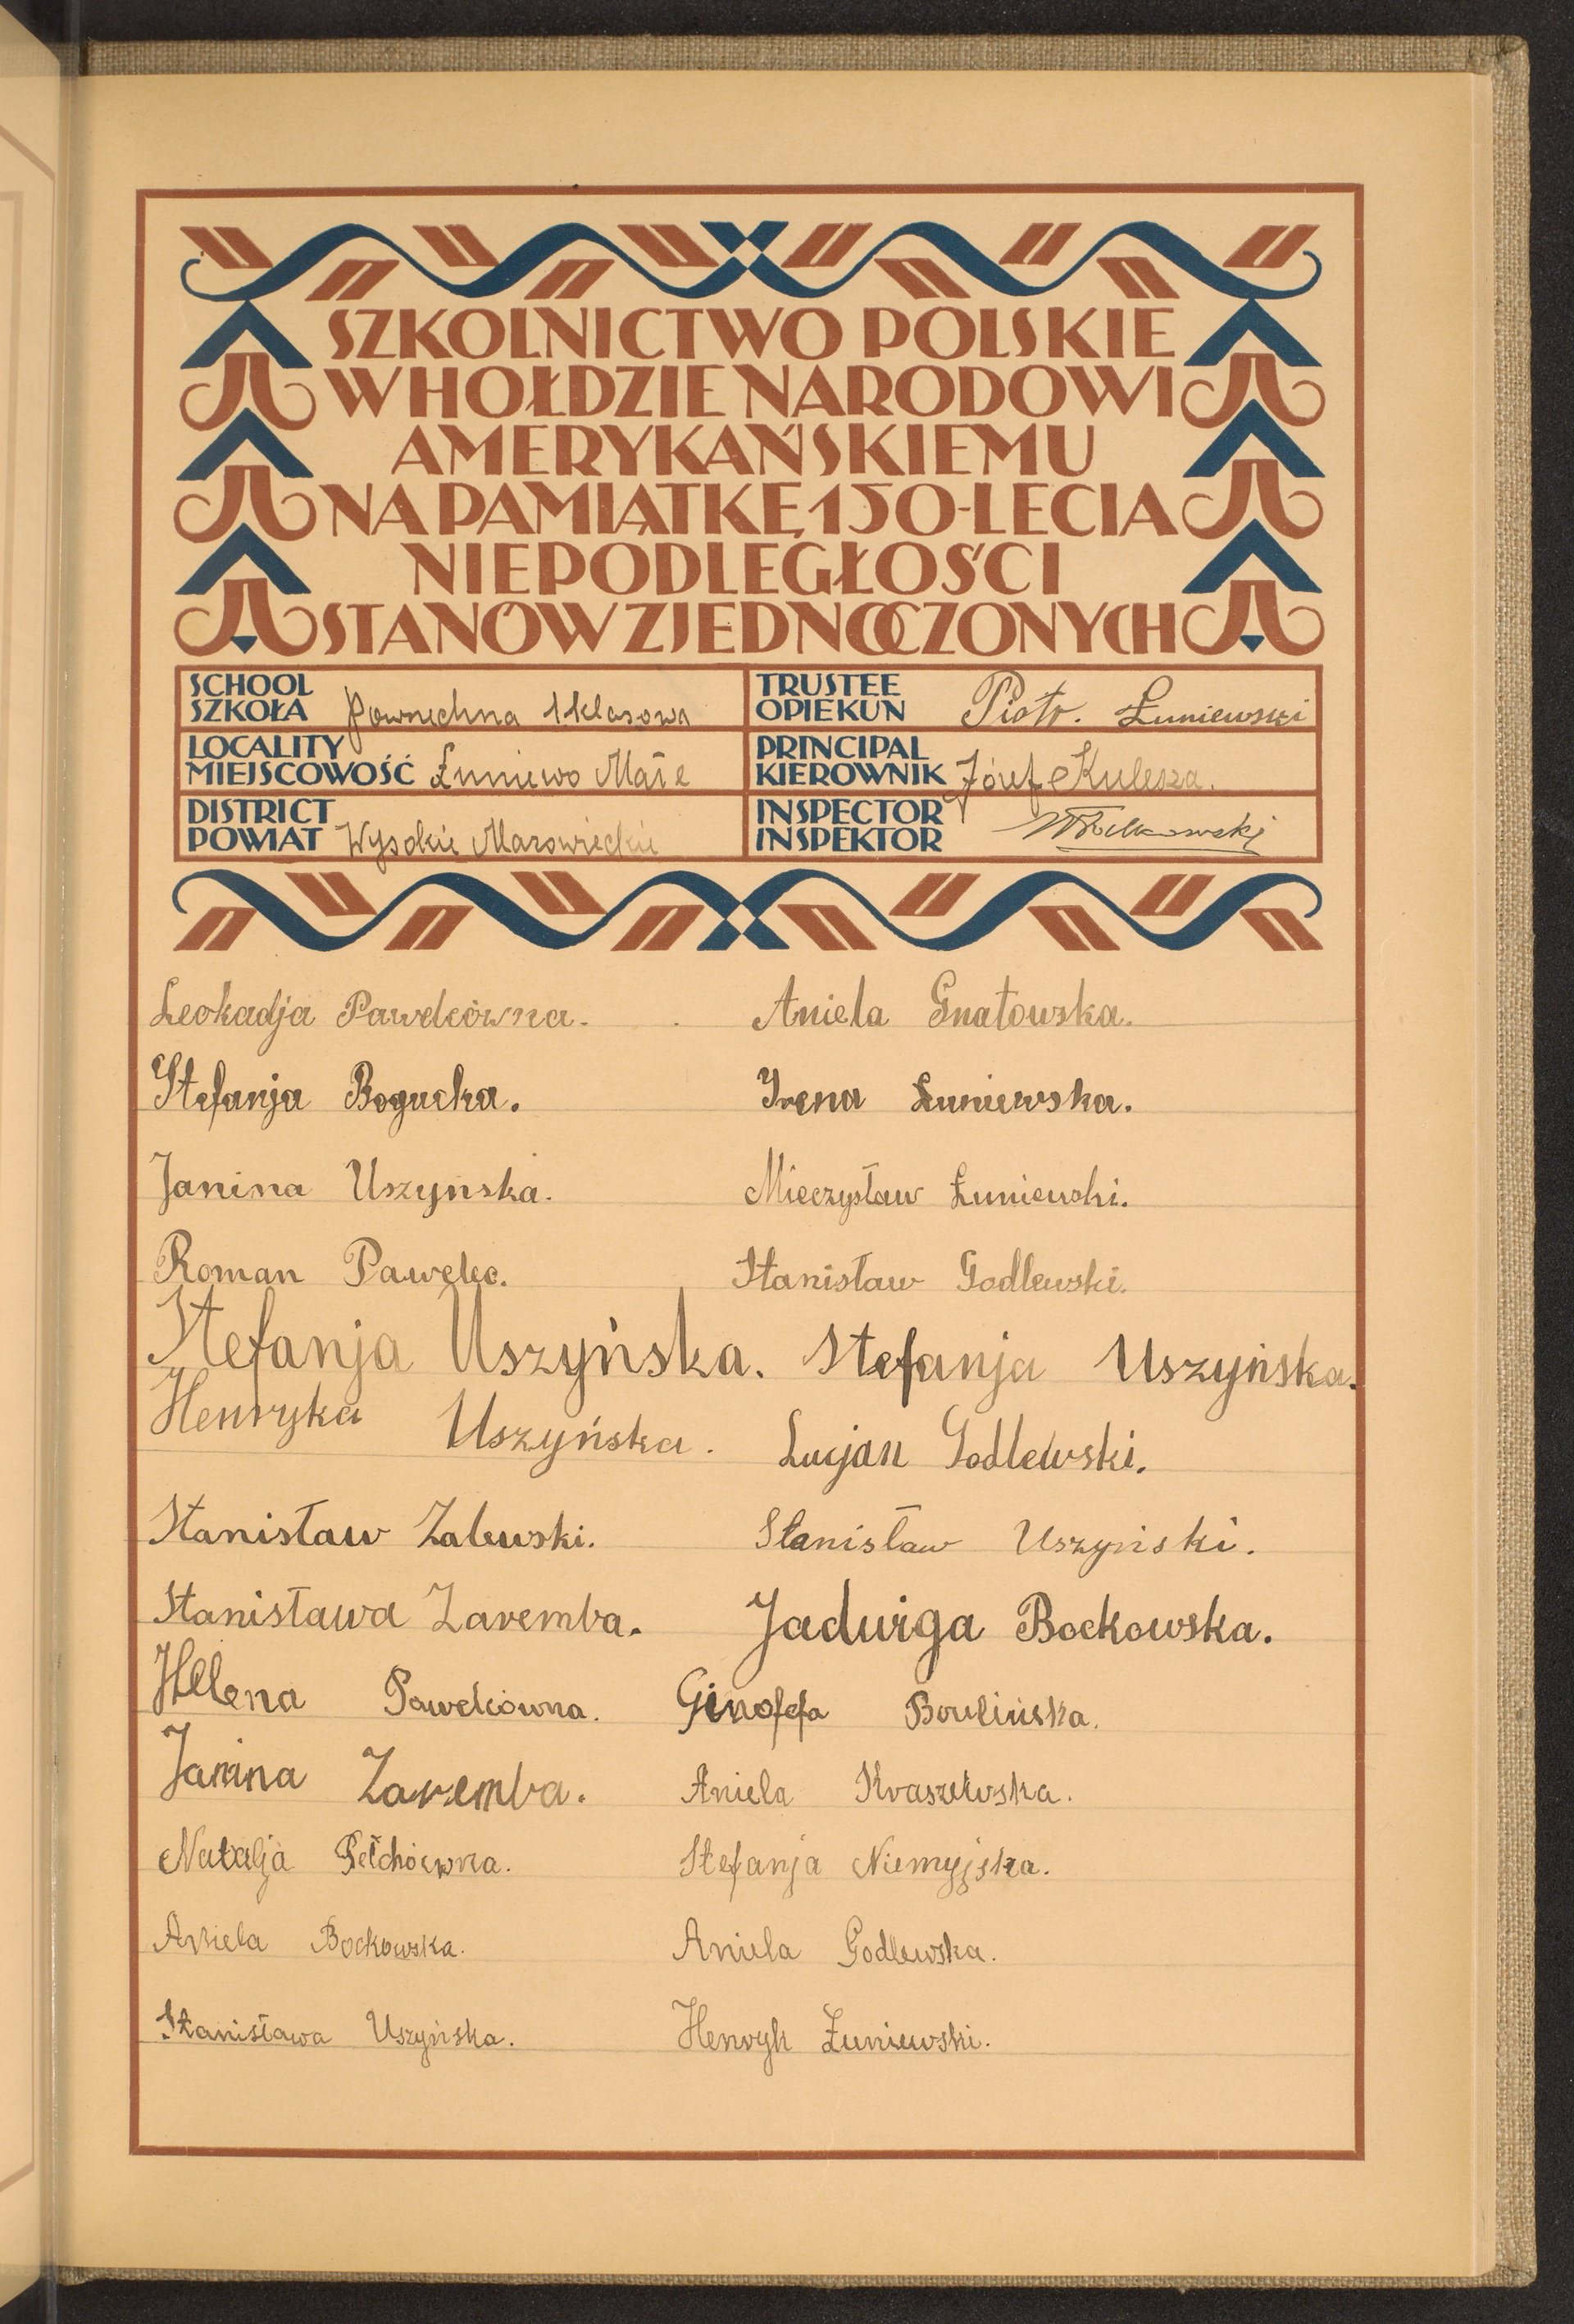 SZKOLNICTWO POLSKIE
W HOŁDZIE NARODOWI
AMERYKAŃSKIEMU
NA PAMIĄTKĘ 150-LECIA
NIEPODLEGŁOŚCI
STANÓW ZJEDNOCZONYCH
SCHOOL
SZKOŁA Powszechna 1 klasowa
TRUSTEE
OPIEKUN Piotr. Łuniewski
LOCALITY
MIEJSCOWOŚĆ Łuniewo Małe
PRINCIPAL
KIEROWNIK Józef Kulesza.
DISTRICT
POWIAT Wysokie Mazowieckie
INSPECTOR
INSPEKTOR
Leokadja Pawelcówna. Aniela Gnatowska.
Stefanja Bogucka. Irena Łuniewska.
Janina Uszyńska. Mieczysław Łuniewski.
Roman Pawelec. Stanisław Godlewski.
Stefanja Uszyńska. Stefanja Uszyńska.
Henryka Uszyńska. Lucjan Godlewski.
Stanisław Zalewski. Stanisław Uszyński.
Stanisława Zaremba. Jadwiga Bockowska.
Helena Pawelcówna. Ginofefa
Janina Zaremba. Aniela Kraszewska.
Natalja Pełchówna. Stefanja Niemyjska.
Aniela Bockowska. Aniela Godlewska.
Stanisława Uszyńska. Henryk Łuniewski.